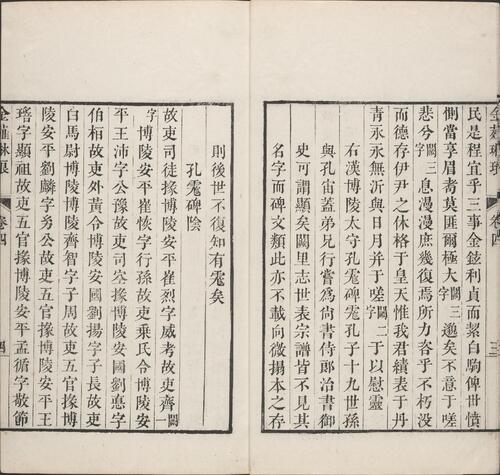 民是程宜乎三事金鉉利貞而絜白駒俾世憤
惻當享眉耇莫匪爾極大字闕三遄矣不意于嗟
悲兮字闕三息漫漫庶幾復焉所力咨乎不朽没
而德存伊尹之休格于皇天惟我君績表于丹
青永永無沂與日月并于嗟字闕二于以慰靈
右漢博陵太守孔彪碑彪孔子十九世孫
與孔宙蓋弟兄行嘗爲尚書侍郎治書御
史可謂顯矣闕里志世表宗譜皆不見其
名字而碑文類此亦不載向微搨本之存
則後世不復知有彪矣
孔彪碑陰
故吏司徒掾博陵安平崔烈字威考故吏齊闕一
字博陵安平崔恢字行孫故吏乘氏令博陵安
平王沛字公豫故吏司空掾博陵安國劉悳字
伯桓故吏外黄令博陵安國劉揚字子長故吏
白馬尉博陵博陵齊智字子周故吏五官掾博
陵安平劉麟字多公故吏五官掾博陵安平王
瑎字顯祖故吏五官掾博陵安平孟循字敬節
金薤琳琅
卷四
四